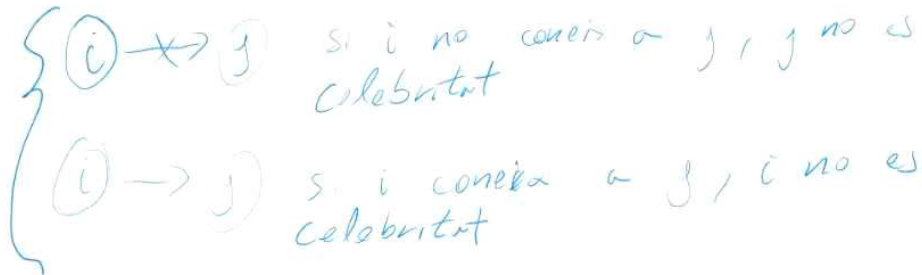 i → j si i no coneix a j, j no es
celebritat
i → j si i coneixa a j, i no es
celebritat